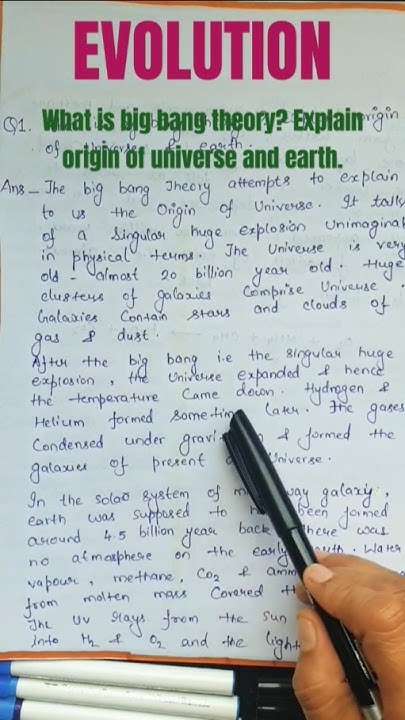 EVOLUTION
What is big bang theory? Explain
origin of universe and earth.
Q1. origin
Ans- The big bang Theory attempts to explain
to us the Origin of Universe. It talks
of a singular huge explosion unimaginable
in physical terms. The Universe is very
old - almost 20 billion year old. Huge
clusters of galaxies comprise Universe.
Galaxies Contain stars and clouds of
gas & dust.
After the big bang i.e the singular huge
explosion, the Universe expanded & hence
the temperature Came down. Hydrogen &
Helium formed sometime later. The gases
Condensed under & formed the
galaxies of present Universe.
In the solar system of galaxy,
earth was supposed to been formed
around 4.5 billion year back. There was
no atmosphere on the early Water
vapour, methane, CO2 &
from molten mass Covered
The UV rays from the Sun
into H2 & O2 and the